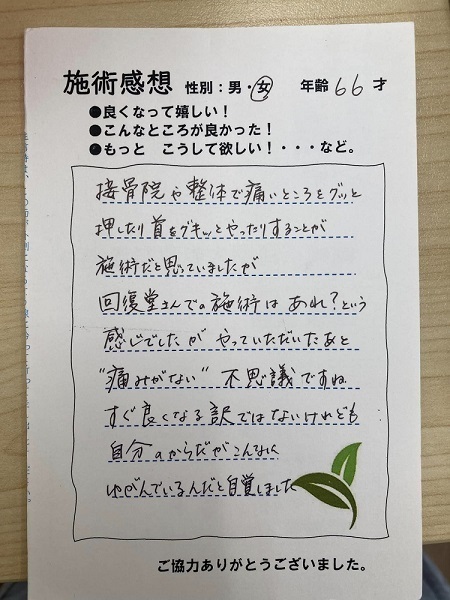 施術感想 性別：男・女 年齢 66 才
●良くなって嬉しい！
●こんなところが良かった！
●もっと こうして欲しい！・・・など。
接骨院や整体で痛いところをグッと
押したり首をグキッとやったりすることが
施術だと思っていましたが
回復堂さんでの施術は あれ？という
感じでしたが やっていただいたあと
"痛みがない" 不思議ですね
すぐ良くなる訳ではないけれども
自分のからだがこんなに
ゆがんでいるんだと自覚しました
ご協力ありがとうございました。